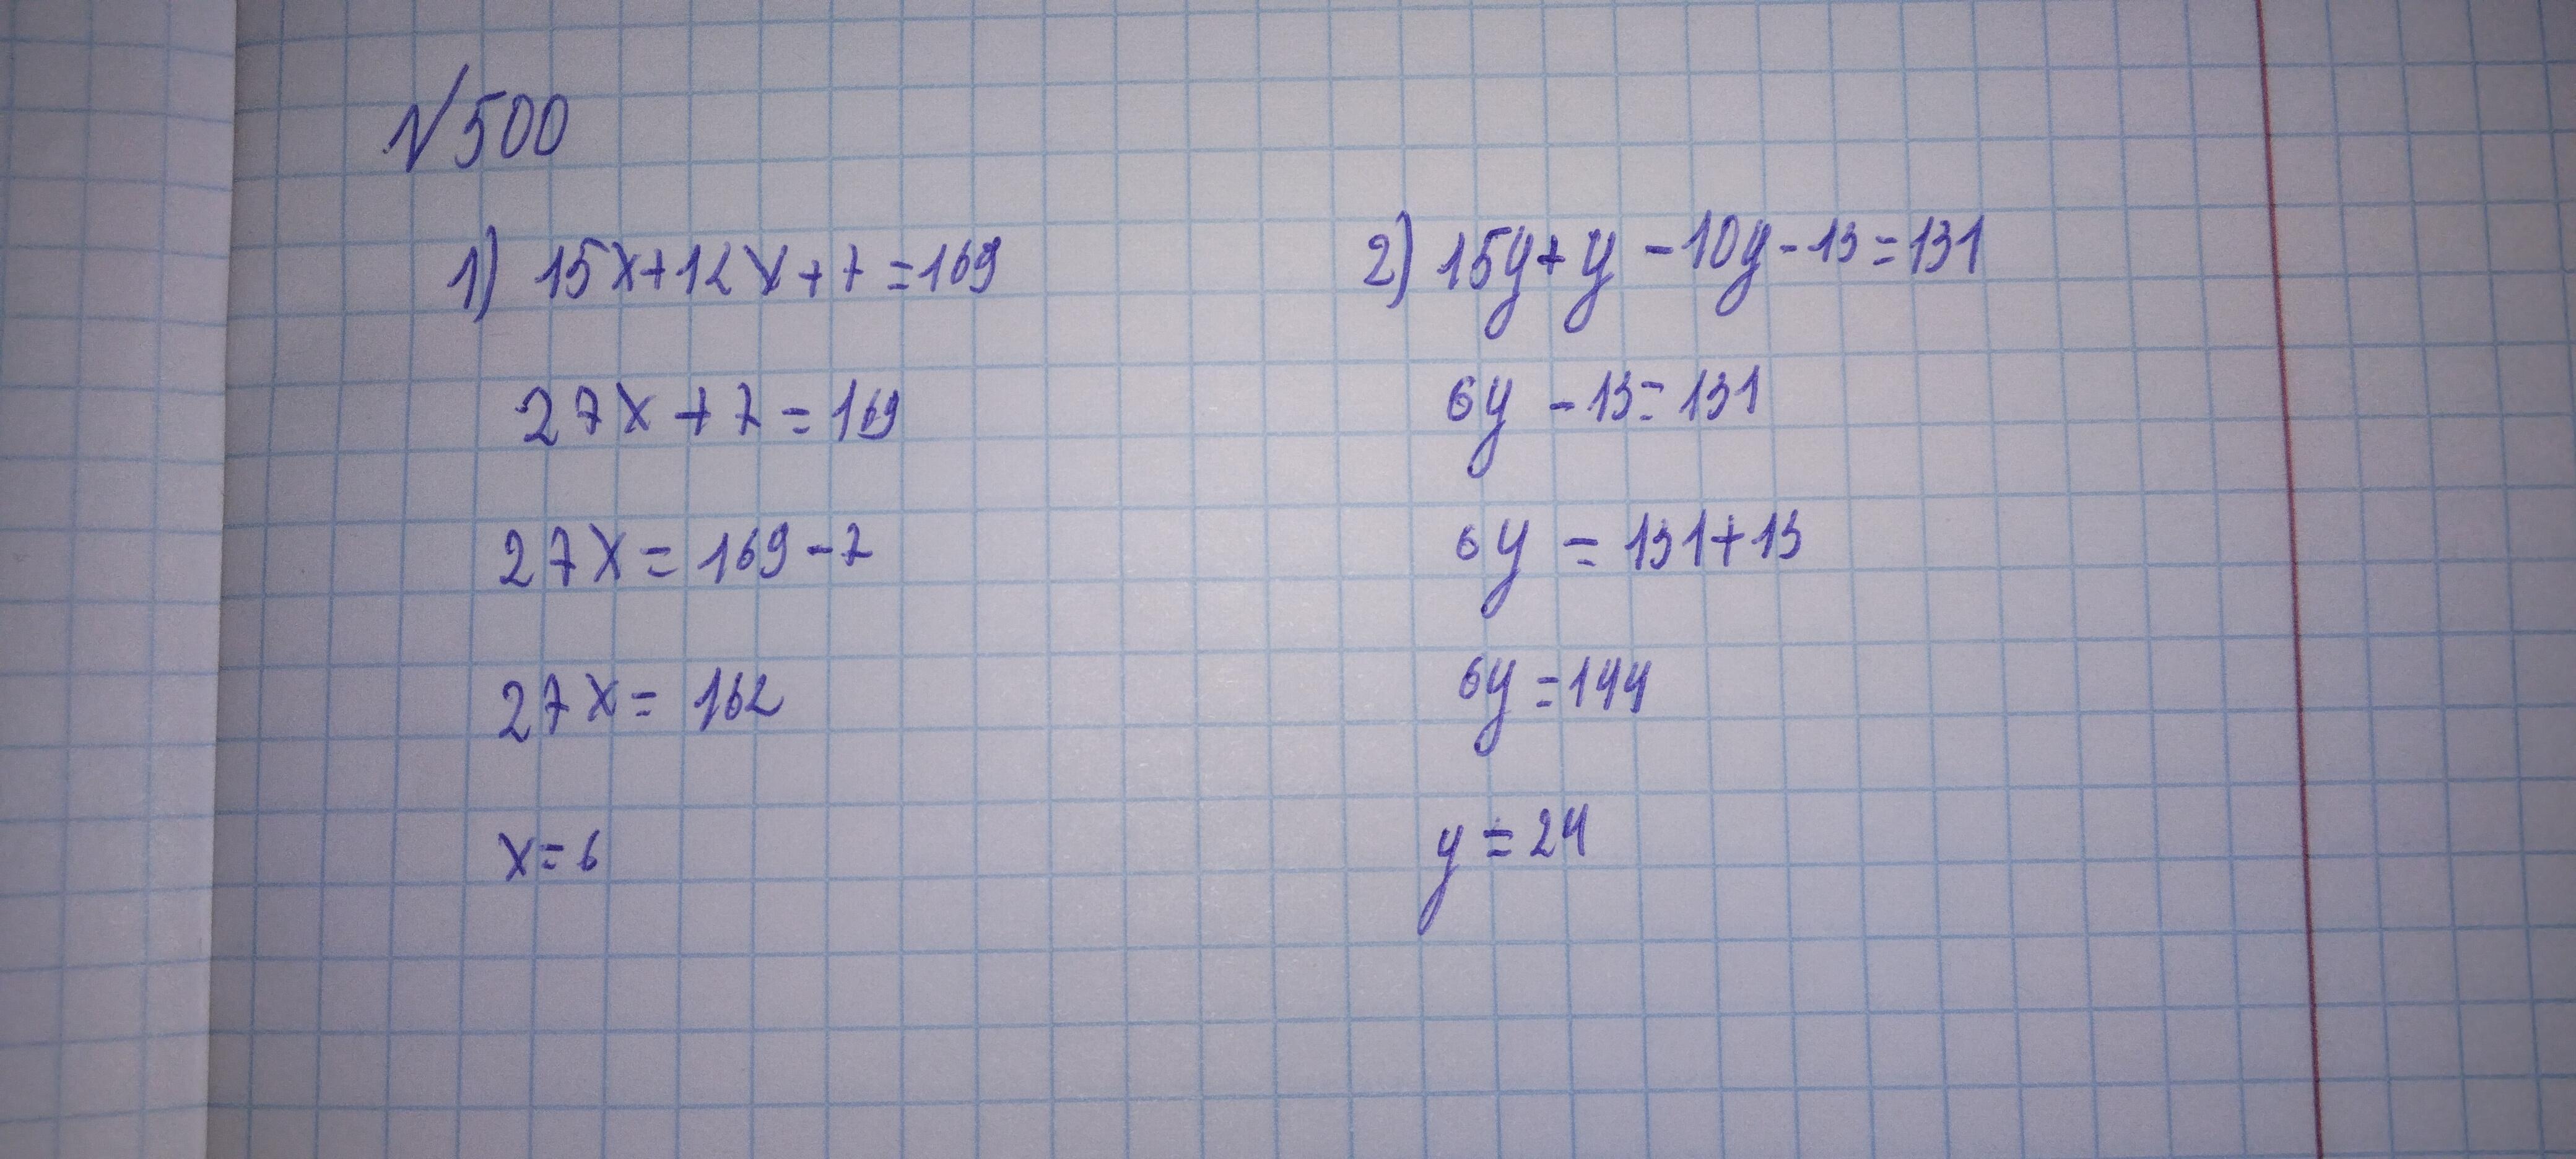 №500
1) 15x+12x+7=169
27x+7=169
27x=169-7
27x=162
x=6
2) 15y+y-10y-13=131
6y-13=131
6y=131+13
6y=144
y=24